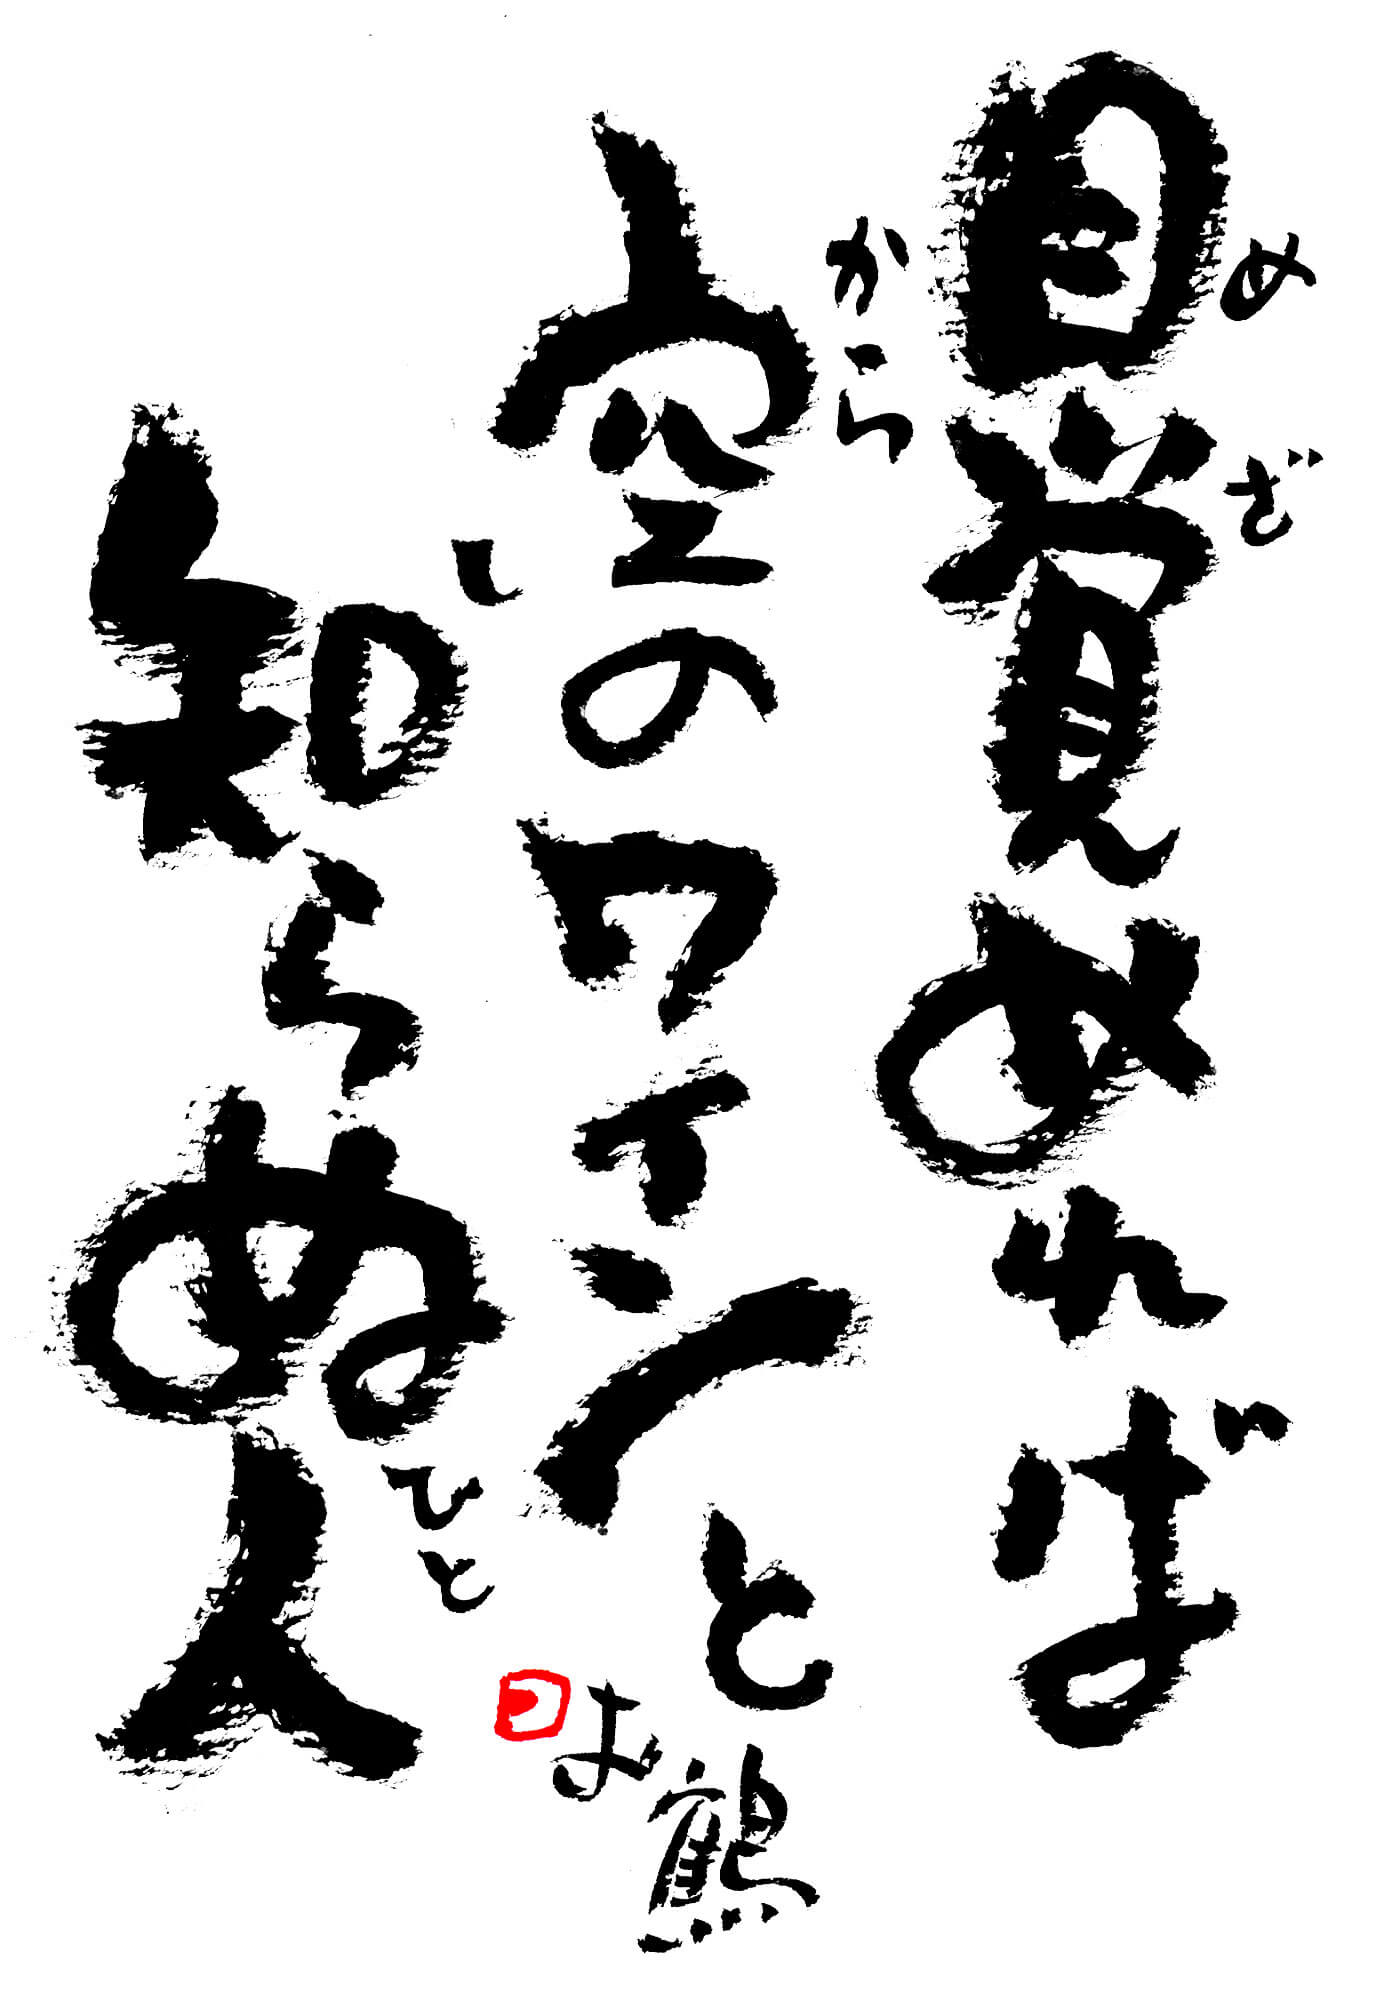 目覚めればめざ
空のワインとから
知らぬ人しひと
お鶴